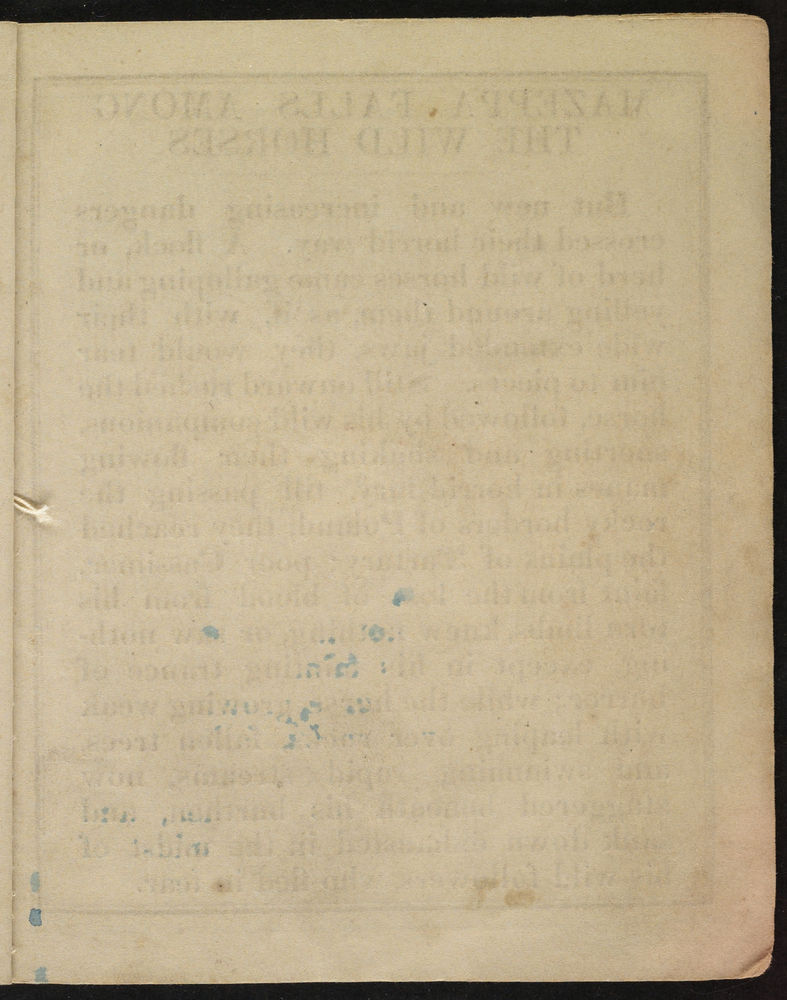 MAZEPPA FALLS AMONG
THE WILD HORSES
But new and increasing dangers
crossed their horrid way. A flock, or
herd of wild horses came galloping and
yelling around them, as if, with their
wide expanded jaws, they would tear
him to pieces. Still onward rushed the
horse, followed by his wild companions,
snorting and shaking their flowing
manes in horrid till passing the
rocky borders of Poland, they reached
the plains of Tartary: poor Cassimer,
faint from the loss of blood from his
tore limbs, knew nothing, or saw noth-
ing except in his fainting trance of
horror; while the horse, growing weak
with leaping over rocks, fallen trees,
and swimming rapid streams, now
staggered beneath his burthen, and
sunk down exhausted in the midst of
his wild followers, who fled in fear.